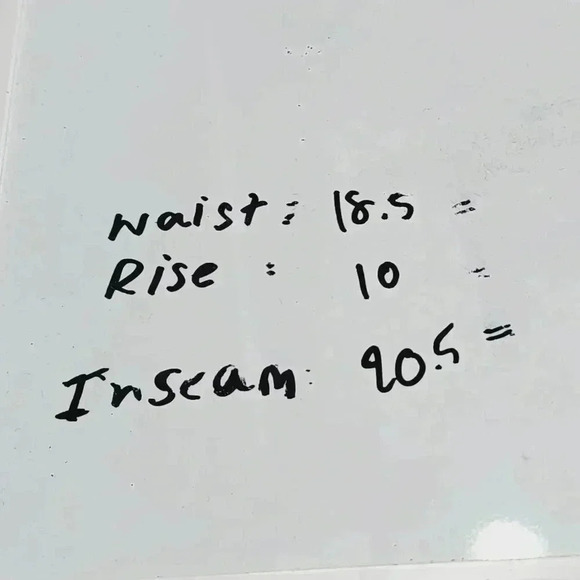 waist: 18.5 =
Rise : 10 =
Inseam: 20.5 =